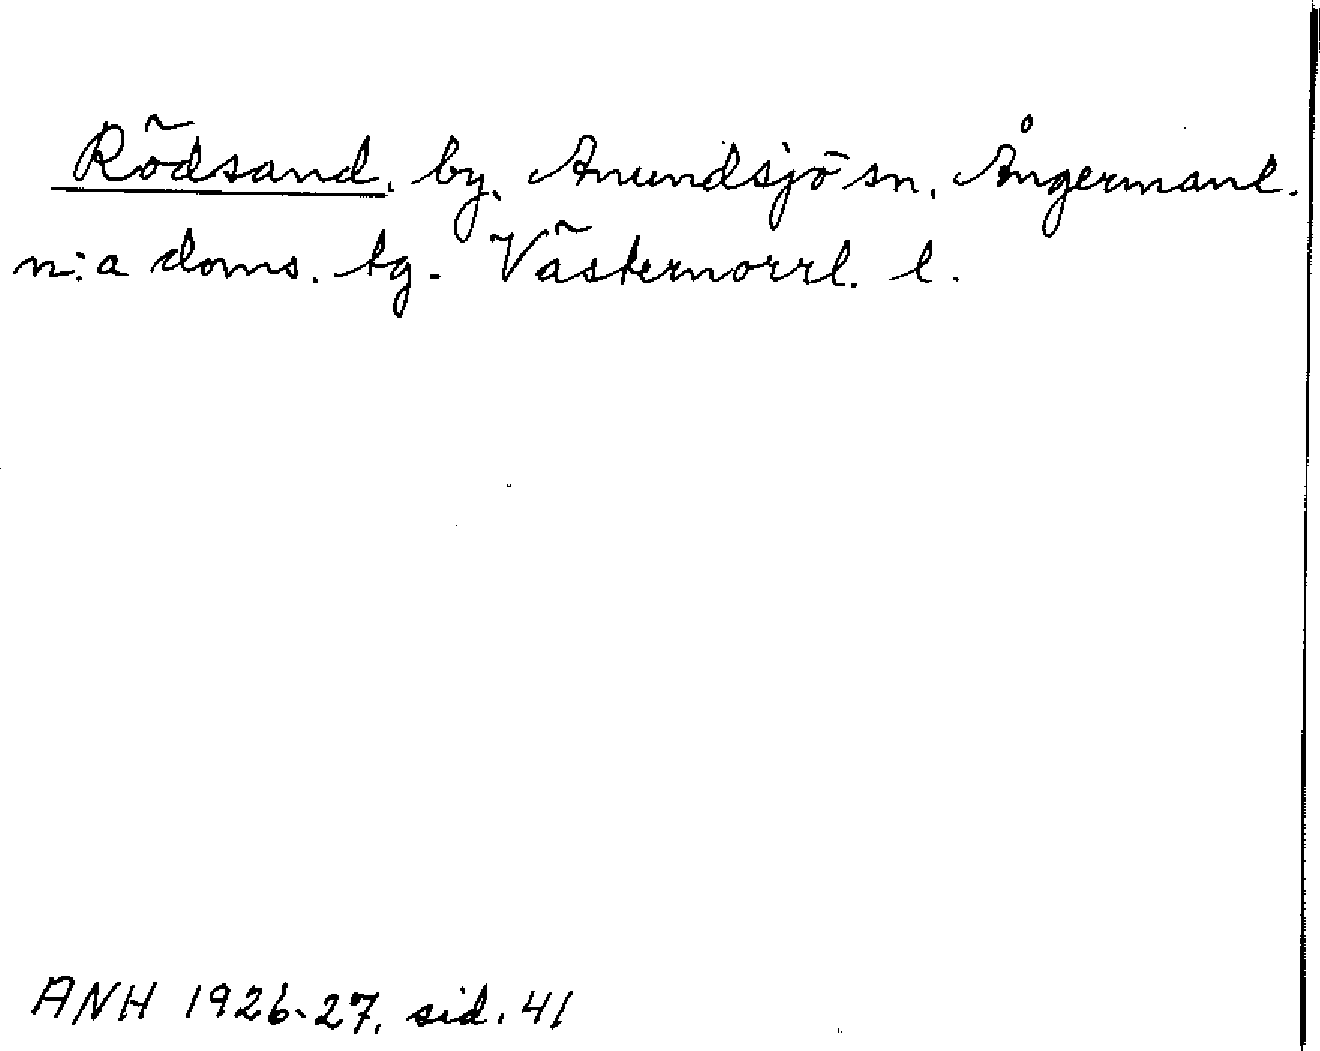 Rödsand, by, Anundsjö sn, Ångermanl.
n:a doms. tg. Västernorrl. l.
ANH 1926-27, sid. 41